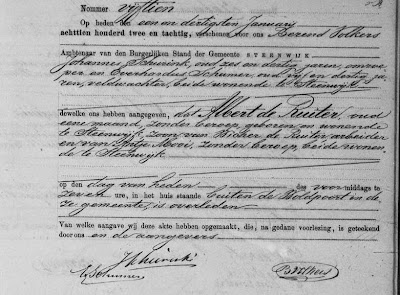 Nommer vyftien
Op heden den een en dertigsten Januarij
achttien honderd twee en tachtig, verschenen voor ons Berend Volkers
Ambtenaar van den Burgerlijken Stand der Gemeente STEENWIJK
Johannes Scheurink, oud zes en dertig jaren, omroe-
per en Everhardus Schumer oud vijf en dertig ja-
ren, veldwachter, beide wonende te Steenwijk
dewelke ons hebben aangegeven, dat Albert de Ruiter, oud
eene maand, zonder beroep, geboren en wonende
te Steenwijk, zoon van Bicher de Ruiter arbeider
en van Mooi, zonder beroep beide wonen-
de te Steenwijk
op den dag van heden des voormiddags te
zeven ure, in het huis staande buiten de Woldpoort in de-
ze gemeente, is overleden
Van welke aangave wij deze akte hebben opgemaakt, die, na gedane voorlezing, is geteekend
door ons en de aangevers